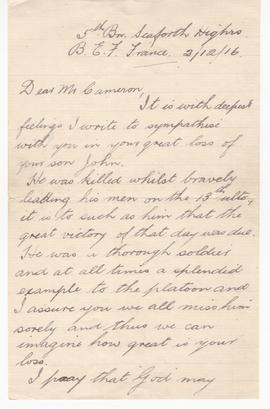 5th Bn. Seaforth Highrs
B. E. F. France. 2/12/16.
Dear Mr Cameron,
It is with deepest
feelings I write to sympathise
with you in your great loss of
your son John.
He was killed whilst bravely
leading his men on the 13th ulto,
it is to such as him that the
great victory of that day was due.
He was a thorough soldier
and at all times a splendid
example to the platoon and
I assure you we all miss him
sorely and thus we can
imagine how great is your
loss.
I pray that God may